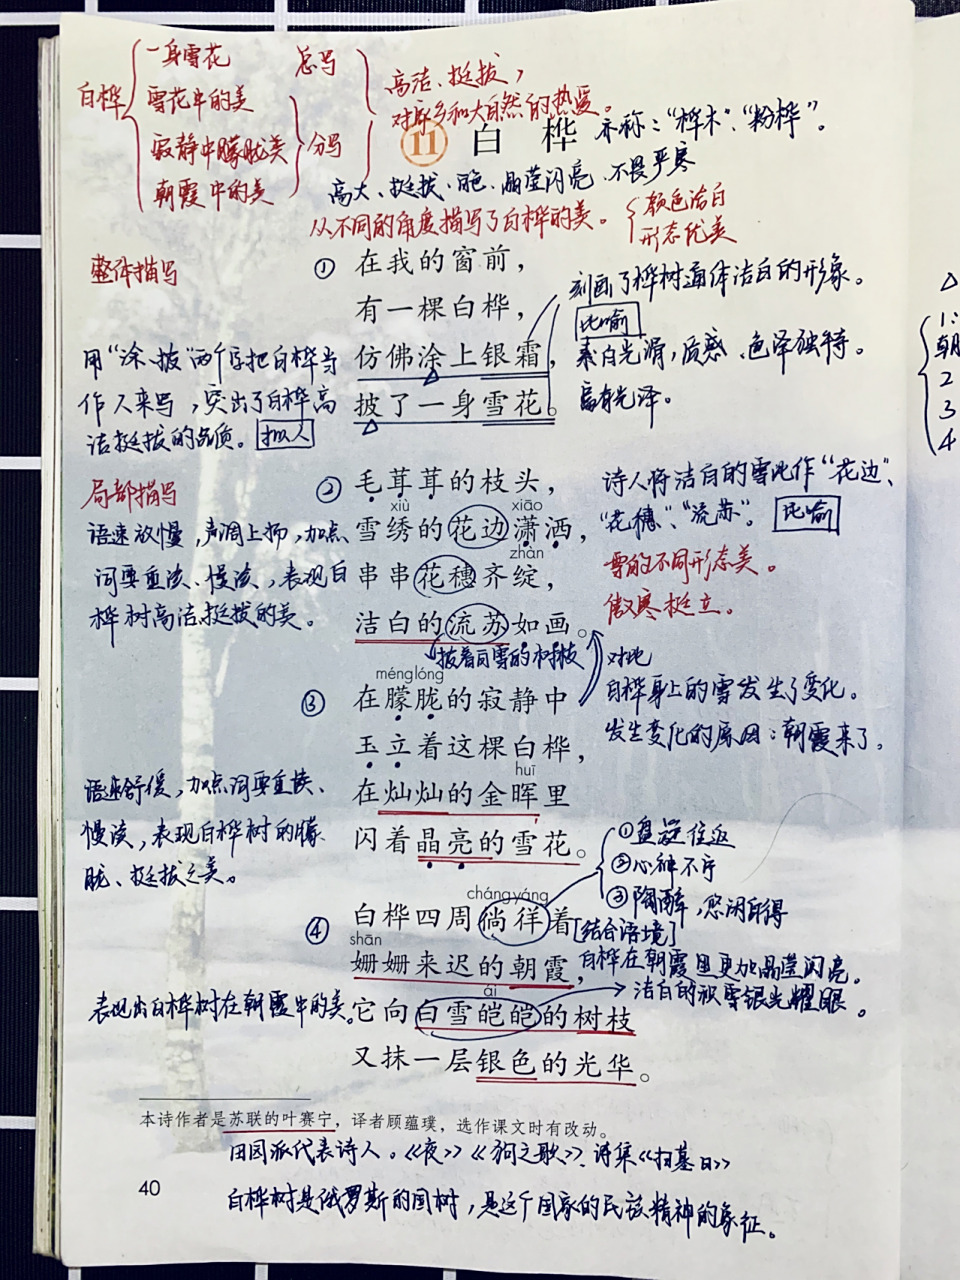 白桦
一身雪花
雪花中的美
寂静中朦胧美
朝霞中的美
总写
分写
高洁、挺拔,
对家乡和大自然的热爱。
11 白桦
亦称:"桦木"、"粉桦"。
高大、挺拔、白色、晶莹闪亮、不畏严寒
从不同的角度描写了白桦的美。
颜色洁白
形态优美
整体描写
① 在我的窗前,
有一棵白桦,
仿佛涂上银霜,
披了一身雪花。
刻画了桦树通体洁白的形象。
比喻
素白光滑,质感、色泽独特。
富有光泽。
用"涂、披"两个字把白桦当
作人来写,突出了白桦高
洁挺拔的品质。 拟人
局部描写
语速放慢,声调上扬,加点
词要重读、慢读,表现白
桦树高洁挺拔的美。
② 毛茸茸的枝头,
xiù xiāo
雪绣的花边潇洒,
zhàn
串串花穗齐绽,
洁白的流苏如画。
披着白雪的树枝
诗人将洁白的雪比作"花边"、
"花穗"、"流苏"。 比喻
雪的不同形态美。
傲寒挺立。
对比
白桦身上的雪发生了变化。
发生变化的原因:朝霞来了。
ménglóng
③ 在朦胧的寂静中
玉立着这棵白桦,
huī
在灿灿的金晖里
闪着晶亮的雪花。
语速舒缓,加点词要重读、
慢读,表现白桦树的朦
胧、挺拔之美。
①盘旋往返
②心神不宁
③陶醉,悠闲自得
[结合语境]
chángyáng
④ 白桦四周徜徉着
shān
姗姗来迟的朝霞,
ái
它向白雪皑皑的树枝
又抹一层银色的光华。
白桦在朝霞里更加晶莹闪亮。
洁白的积雪银光耀眼。
表现出白桦树在朝霞中的美。
本诗作者是苏联的叶赛宁,译者顾蕴璞,选作课文时有改动。
田园派代表诗人。《夜》《狗之歌》、诗集《扫墓日》
40
白桦树是俄罗斯的国树,是这个国家的民族精神的象征。
1:
朝
2
3
4